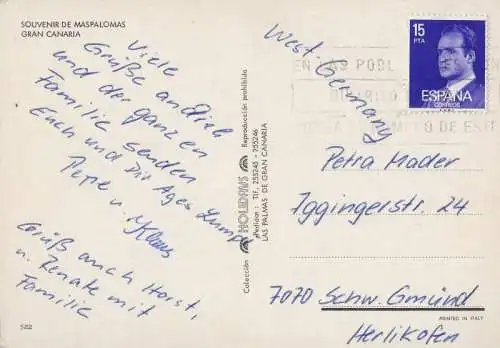 SOUVENIR DE MASPALOMAS
GRAN CANARIA
Viele
Grüße an dich
und der ganzen
Familie senden
Euch und Dir Ages Lump
Pepe u. Klaus
Grüß auch Horst,
u. Renate mit
Familie
5212
Colección HOLIDAYS Reproducción prohibida
Pedidos: Tlf. 255245 - 255246
LAS PALMAS DE GRAN CANARIA
15
PTA
ESPAÑA
CORREOS
West Germany
Petra Mader
Iggingerstr. 24
7070 Schw. Gmünd
Herlikofen
PRINTED IN ITALY